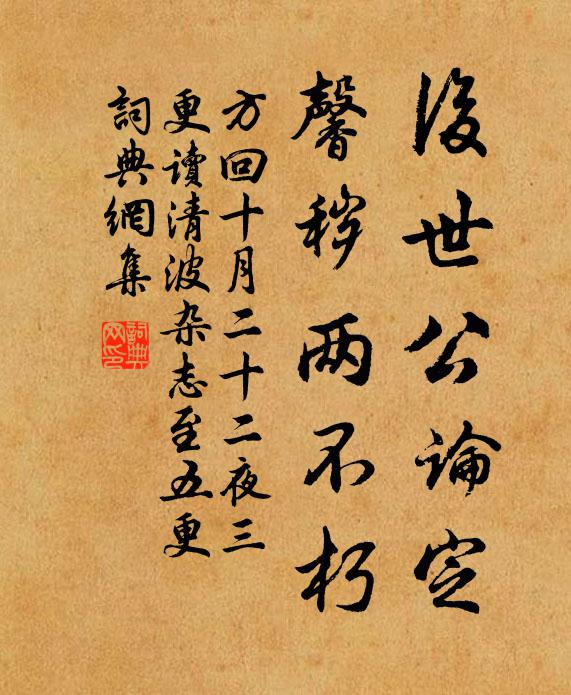 後世公論定
馨秽两不朽
方回十月二十二夜三
更讀清波杂志至五更
詞典網集
詞典网印